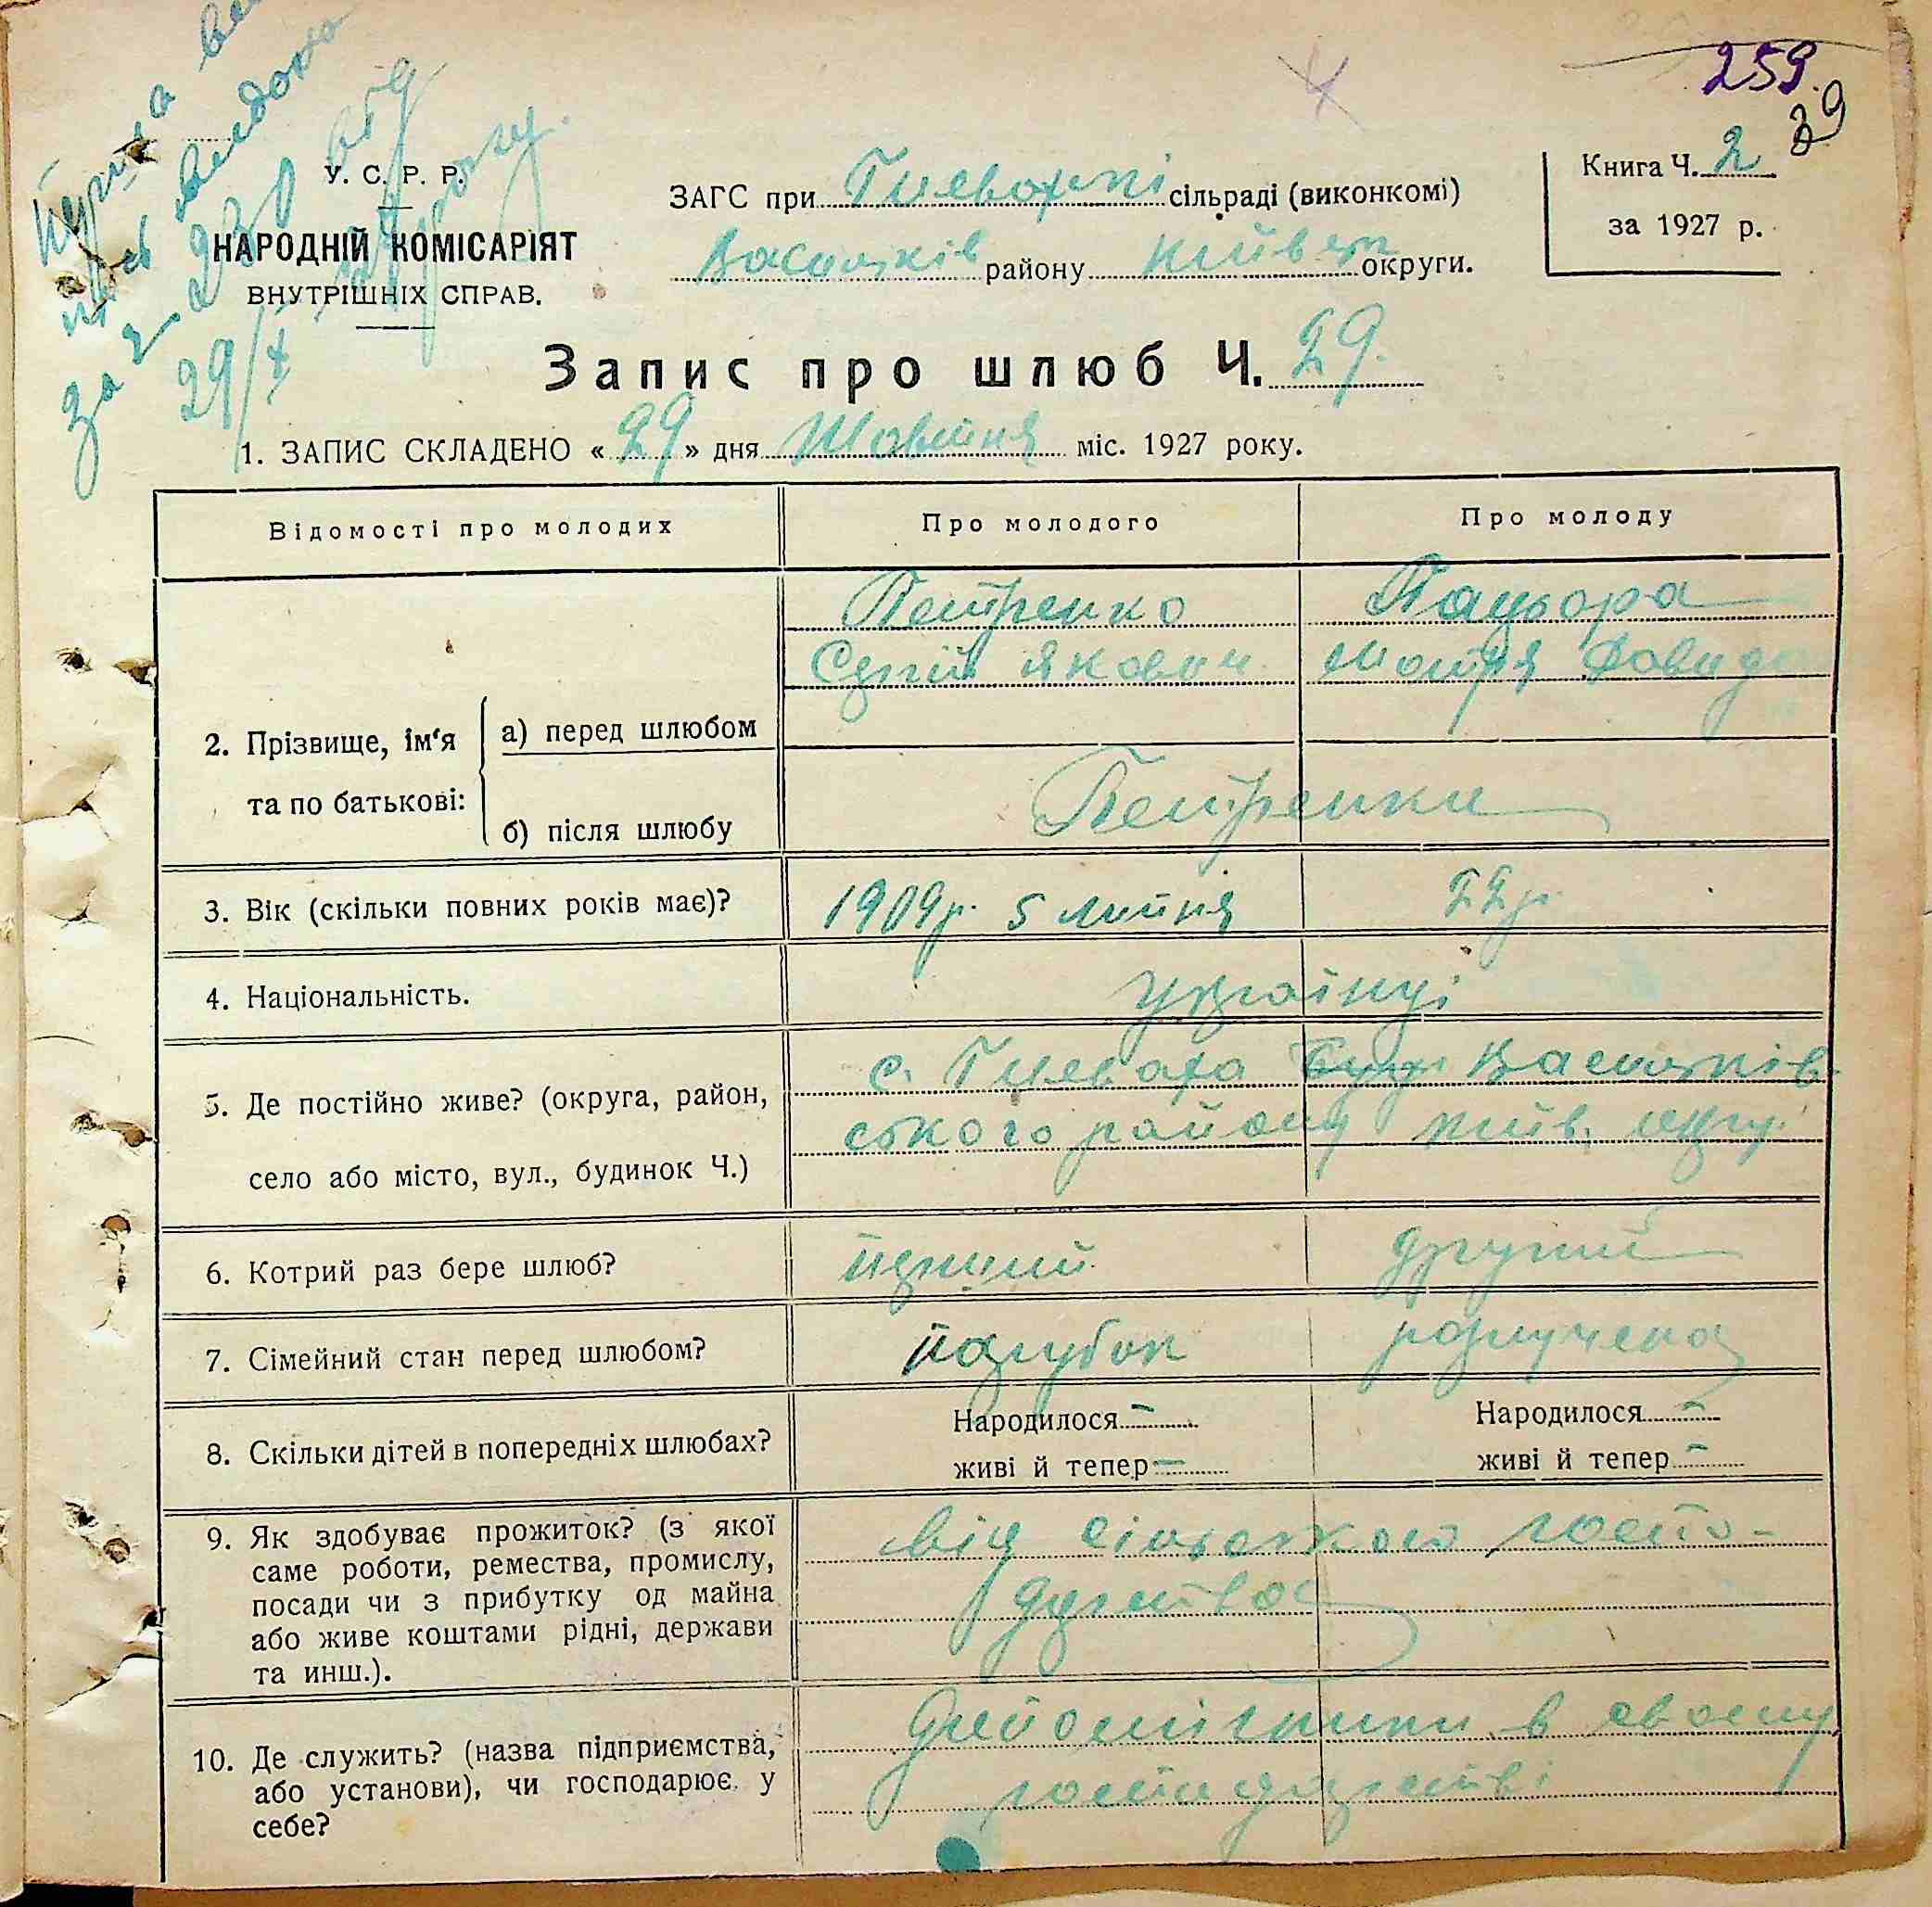 259.
39
У. С. Р. Р.
НАРОДНІЙ КОМІСАРІЯТ
ВНУТРІШНІХ СПРАВ.
29/X
ЗАГС при Гливахські сільраді (виконкомі)
Васильків району Київськ округи.
Книга Ч. 2
за 1927 р.
Запис про шлюб Ч. 29.
1. ЗАПИС СКЛАДЕНО « 29 » дня Жовтня міс. 1927 року.
Відомості про молодих
Про молодого
Про молоду
2. Прізвище, ім'я та по батькові:
а) перед шлюбом
Петренко
Сергій Якович
Пацьора
Мотря Давидо
б) після шлюбу
Петренки
3. Вік (скільки повних років має)?
1909р. 5 липня
22р.
4. Національність.
українці
5. Де постійно живе? (округа, район,
село або місто, вул., будинок Ч.)
с. Гливаха Васильків-
ського району Київ. округі
6. Котрий раз бере шлюб?
перший
другий
7. Сімейний стан перед шлюбом?
парубок
розлучена
8. Скільки дітей в попередніх шлюбах?
Народилося –
живі й тепер –
Народилося –
живі й тепер –
9. Як здобуває прожиток? (з якої
саме роботи, ремества, промислу,
посади чи з прибутку од майна
або живе коштами рідні, держави
та инш.).
від сільського госпо-
дарства
10. Де служить? (назва підприємства,
або установи), чи господарює у
себе?
в своєму
господарстві